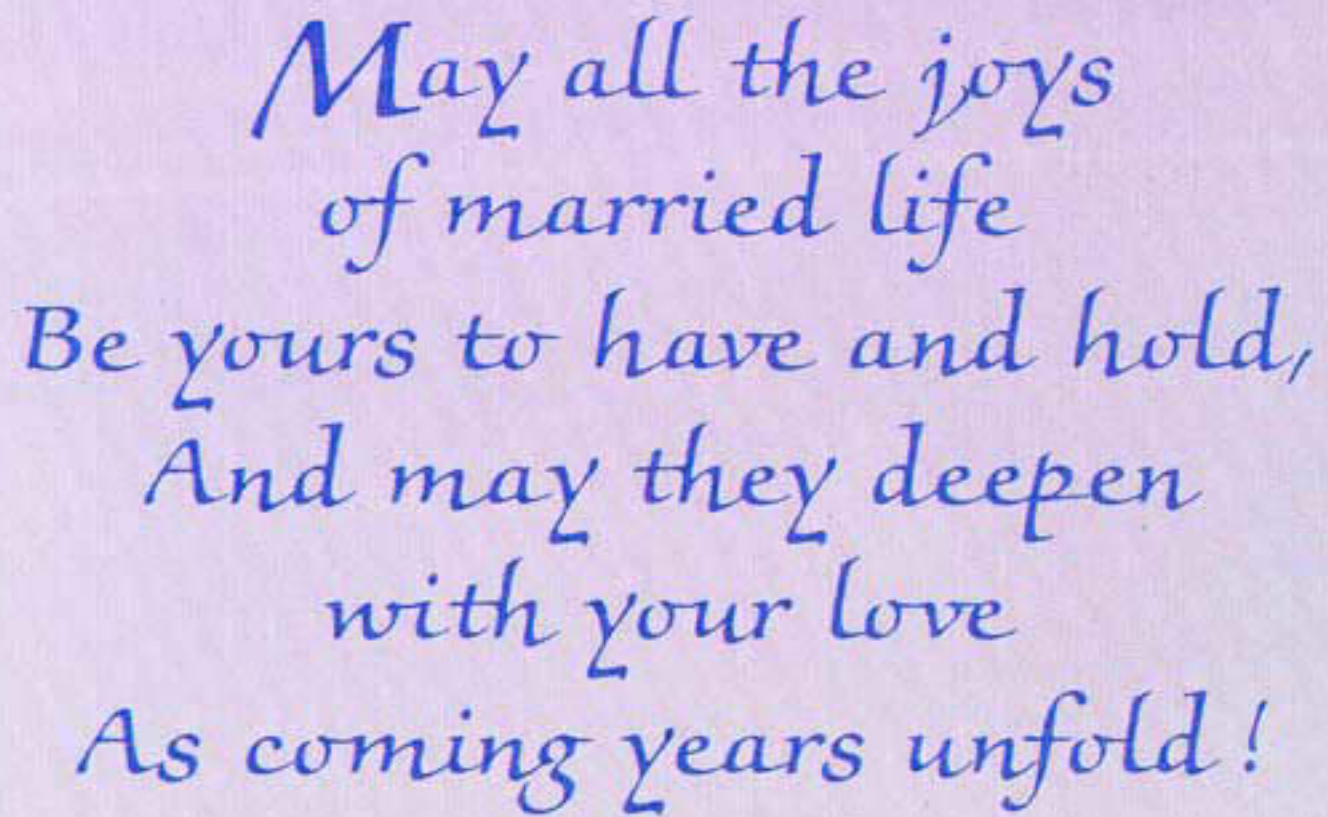 May all the joys
of married life
Be yours to have and hold,
And may they deepen
with your love
As coming years unfold!